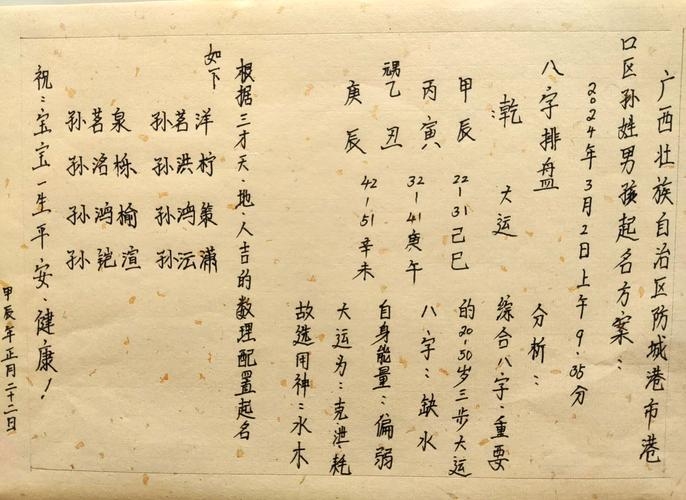 广西壮族自治区防城港市港
口区孙姓男孩起名方案：
2024年3月2日上午9.35分
八字排盘
乾
甲辰
丙寅
乙丑
庚辰
大运
22-31己巳
32-41庚午
42-51辛未
分析：
综合八字、重要
的20-50岁三步大运
八字：缺水
自身能量：偏弱
大运为：克.泄.耗
故选用神：水木
根据三才天.地.人吉的数理配置起名
如下
孙茗洋
孙洪柠
孙鸿策
孙沄潇
孙茗泉
孙洺栎
孙鸿榆
孙铠渲
祝：宝宝一生平安、健康！
甲辰年正月二十二日